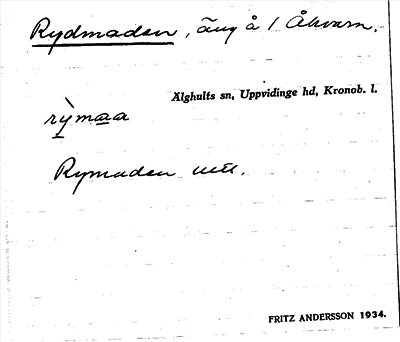 Rydmaden, äng å 1 Åkvarn.
Älghults sn, Uppvidinge hd, Kronob. l.
rỳmaa
Rymaden
FRITZ ANDERSSON 1934.